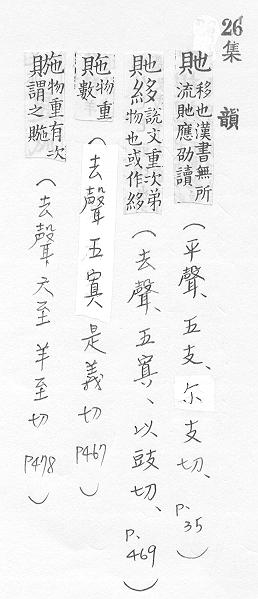 26集韻
貤 移也漢書無所流貤應劭讀（平聲、五支、尔支切、p.35）
貤䝯 說文重次弟物也或作䝯（去聲、五寘、以豉切、p.469）
貤 物重數（去聲五寘是義切p467）
貤 物重有次謂之貤（去聲六至羊至切p478）